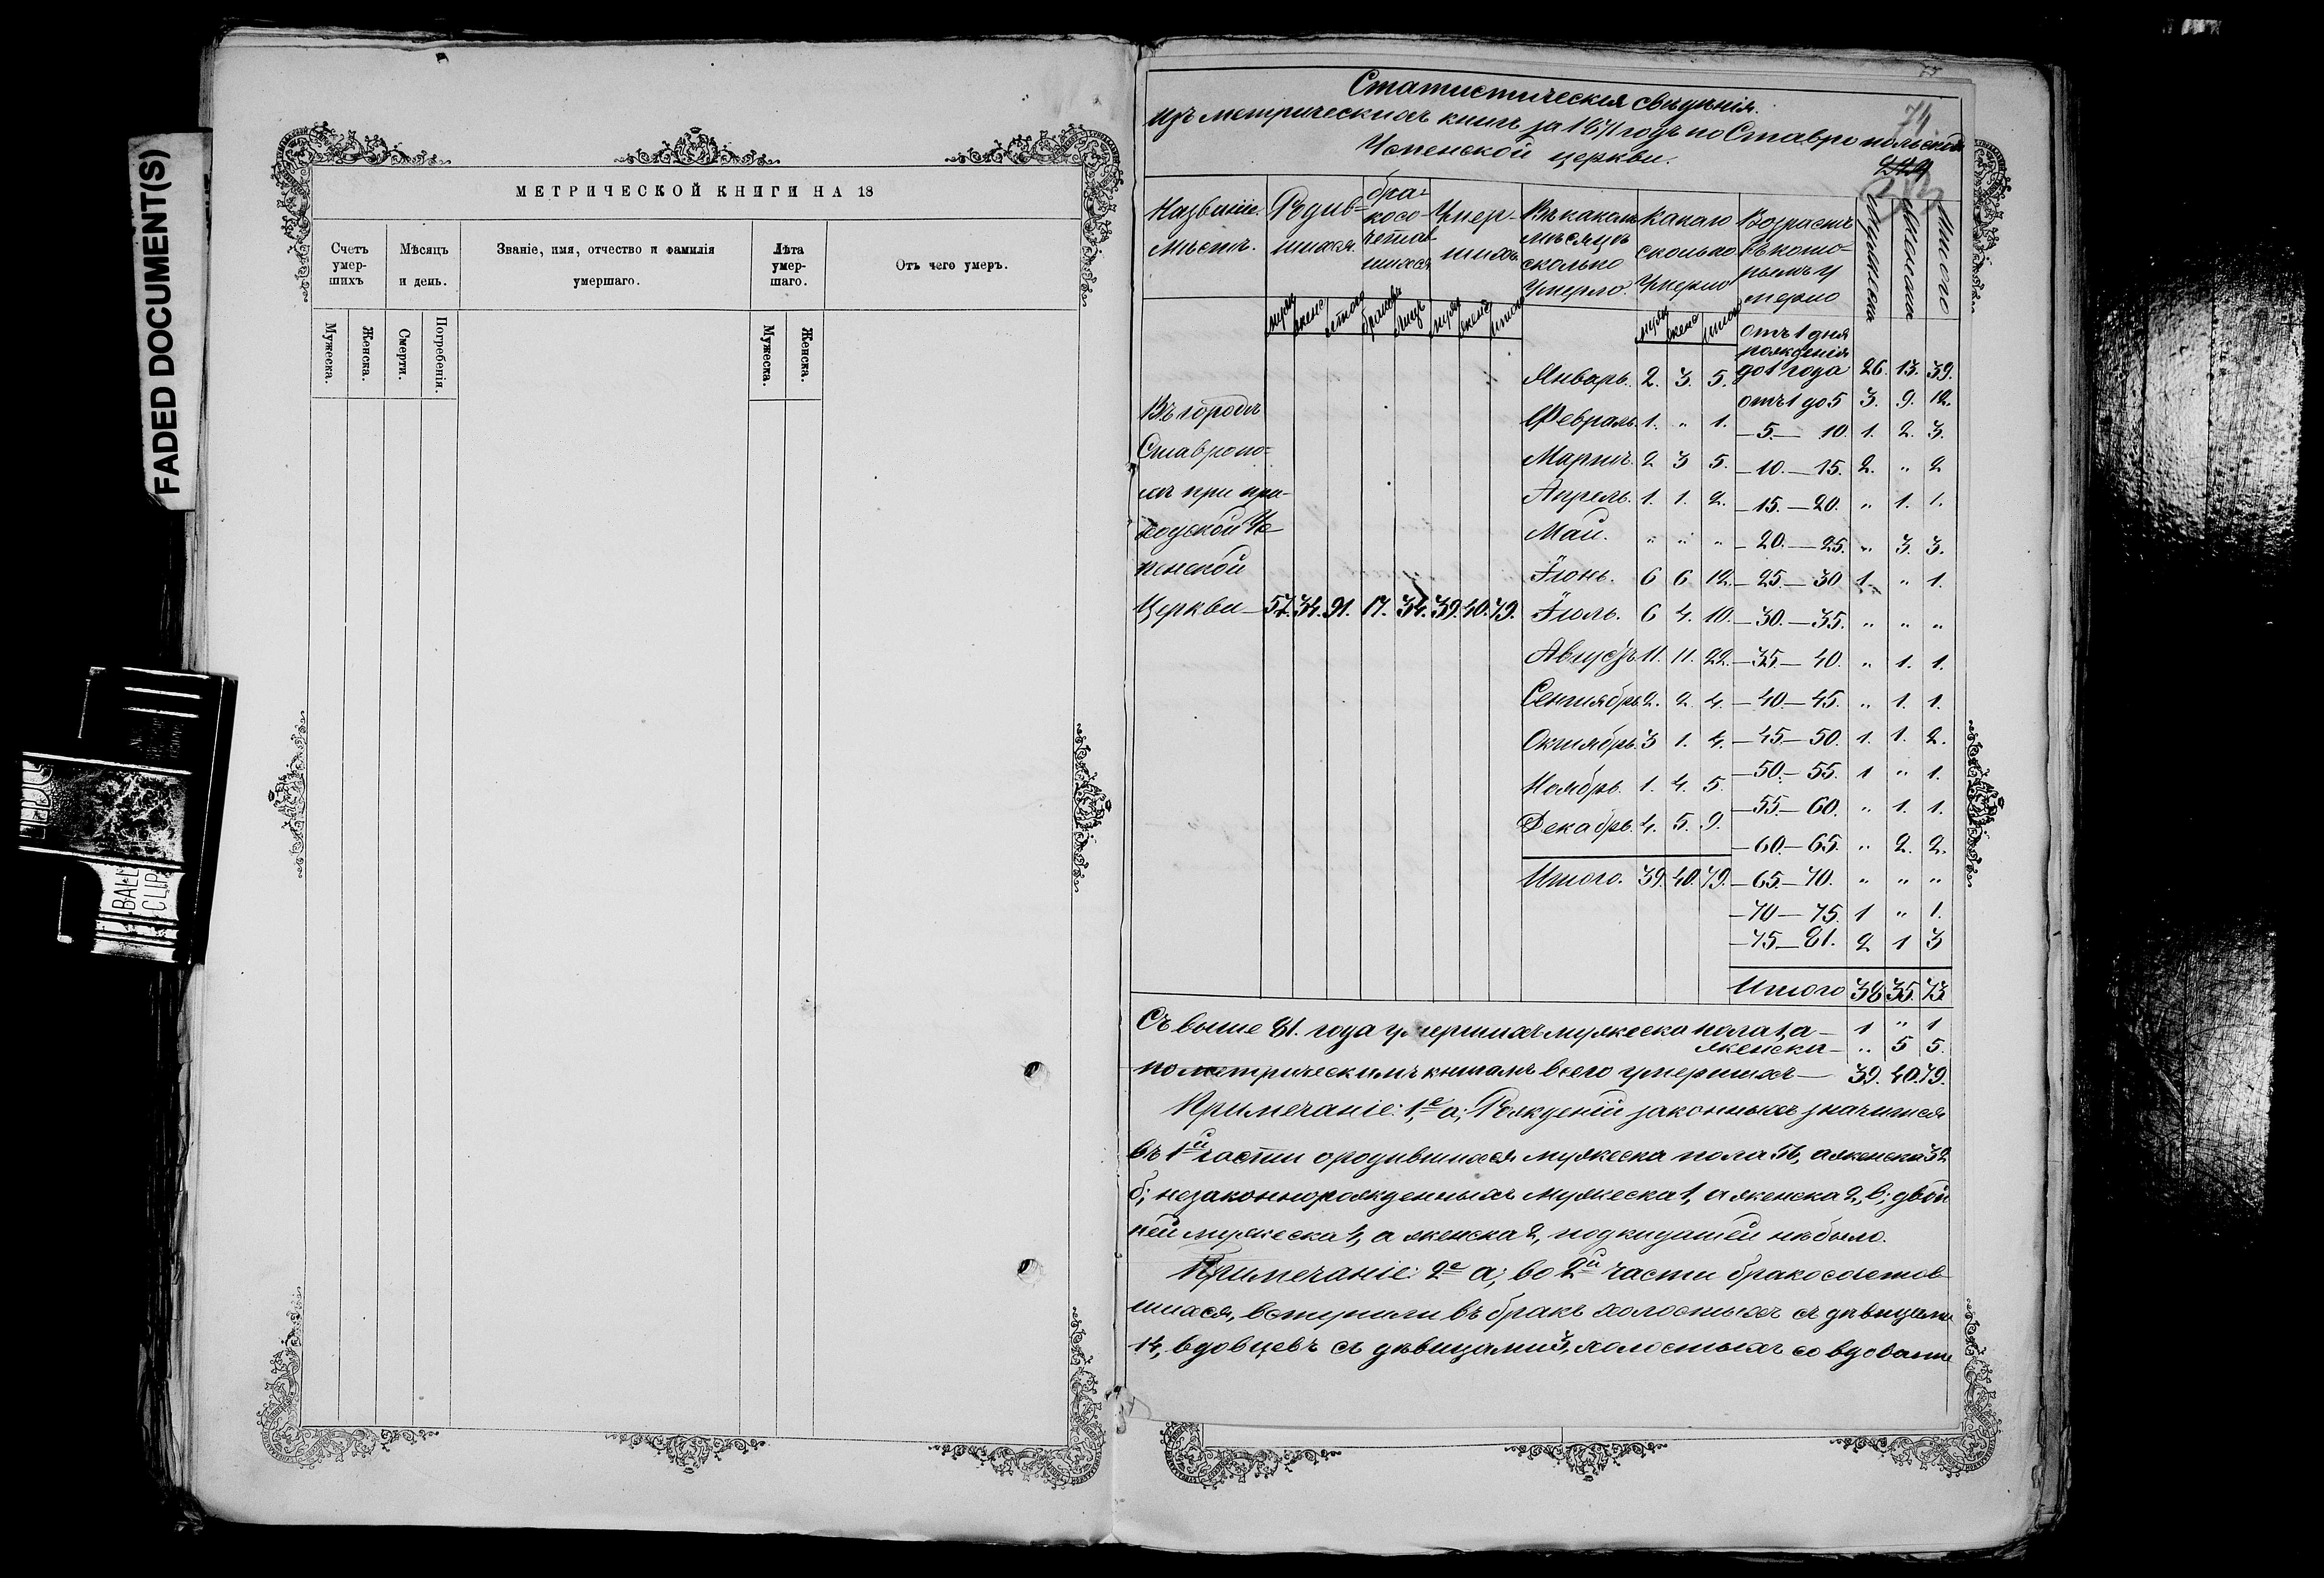 FADED DOCUMENT(S)
BALL
CLIP
МЕТРИЧЕСКОЙ КНИГИ НА 18
Счетъ умер- шихъ
Мѣсяцъ и день.
Званіе, имя, отчество и фамилія умершаго.
Лѣта умер- шаго.
Отъ чего умеръ.
Мужеска. Женска. Смерти. Погребенія. Мужеска. Женска.
74
Статистическія свѣдѣнія.
изъ метрическихъ книгъ за 1871 годъ по Ставропольской
Успенской церкви.
Названіе мѣстъ.
Родив= шихся.
бра- косо- четав шихся
Умер- шихъ
Въ какомъ мѣсяцѣ сколько Умерло.
Какого сколько Умерло
Возрастъ въ кото- рымъ у мерло
Мужеска Женска Итого
муж женс итого браковъ лицъ муж женс итого
муж женс итого
Въ городѣ
Ставропо=
лѣ при при-
ходской Ус
пенской
Церкви — 57. 34. 91. 17. 34. 39. 40. 79.
Январь. 2. 3. 5.
Февраль. 1. „ 1.
Мартъ. 2 3 5.
Апрель. 1. 1. 2.
Май. „ „ „
Іюнь. 6 6 12.
Іюль. 6 4. 10.
Августъ 11. 11. 22.
Сентябрь 2. 2 4.
Октябрь 3 1. 4.
Ноябрь. 1. 4. 5.
Декабрь. 4. 5. 9.
Итого. 39. 40. 79.
отъ 1 дня
рожденія
до 1 года 26. 13. 39.
отъ 1 до 5 3. 9. 12.
— 5. — 10. 1. 2. 3.
— 10. — 15. 2. „ 2
— 15. — 20. „ 1. 1.
— 20. — 25. „ 3. 3.
— 25. — 30 1. „ 1.
— 30. — 35. „ „ „
— 35. — 40. „ 1. 1.
— 40. — 45. „ 1. 1.
— 45 — 50. 1. 1. 2.
— 50. — 55. 1 „ 1.
— 55. — 60. „ 1. 1.
— 60. — 65. „ 2. 2.
— 65. — 70. „ „ „
— 70 — 75. 1 „ 1.
— 75 — 81. 2 1 3
Итого 38 35. 73
Съ выше 81. года умершихъ мужеска пола 1, а — 1 „ 1
женска — „ 5 5.
по метрическимъ книгамъ всего умершихъ — 39. 40. 79.
Примечаніе: 1,е а; Рожденій законныхъ значится
въ 1й части о родившихся мужеска пола 56, а женска 32
б; незаконнорожденныхъ мужеска 1, а женска 2, в; двой
ней мужеска 1, а женска 2, подкидышей нѣ было.
Примечаніе: 2е а; во 2й части бракосочетов-
шихся, вступили въ бракъ холостыхъ съ дѣвицами
14, вдовцевъ съ дѣвицами 3, холостыхъ со вдовами